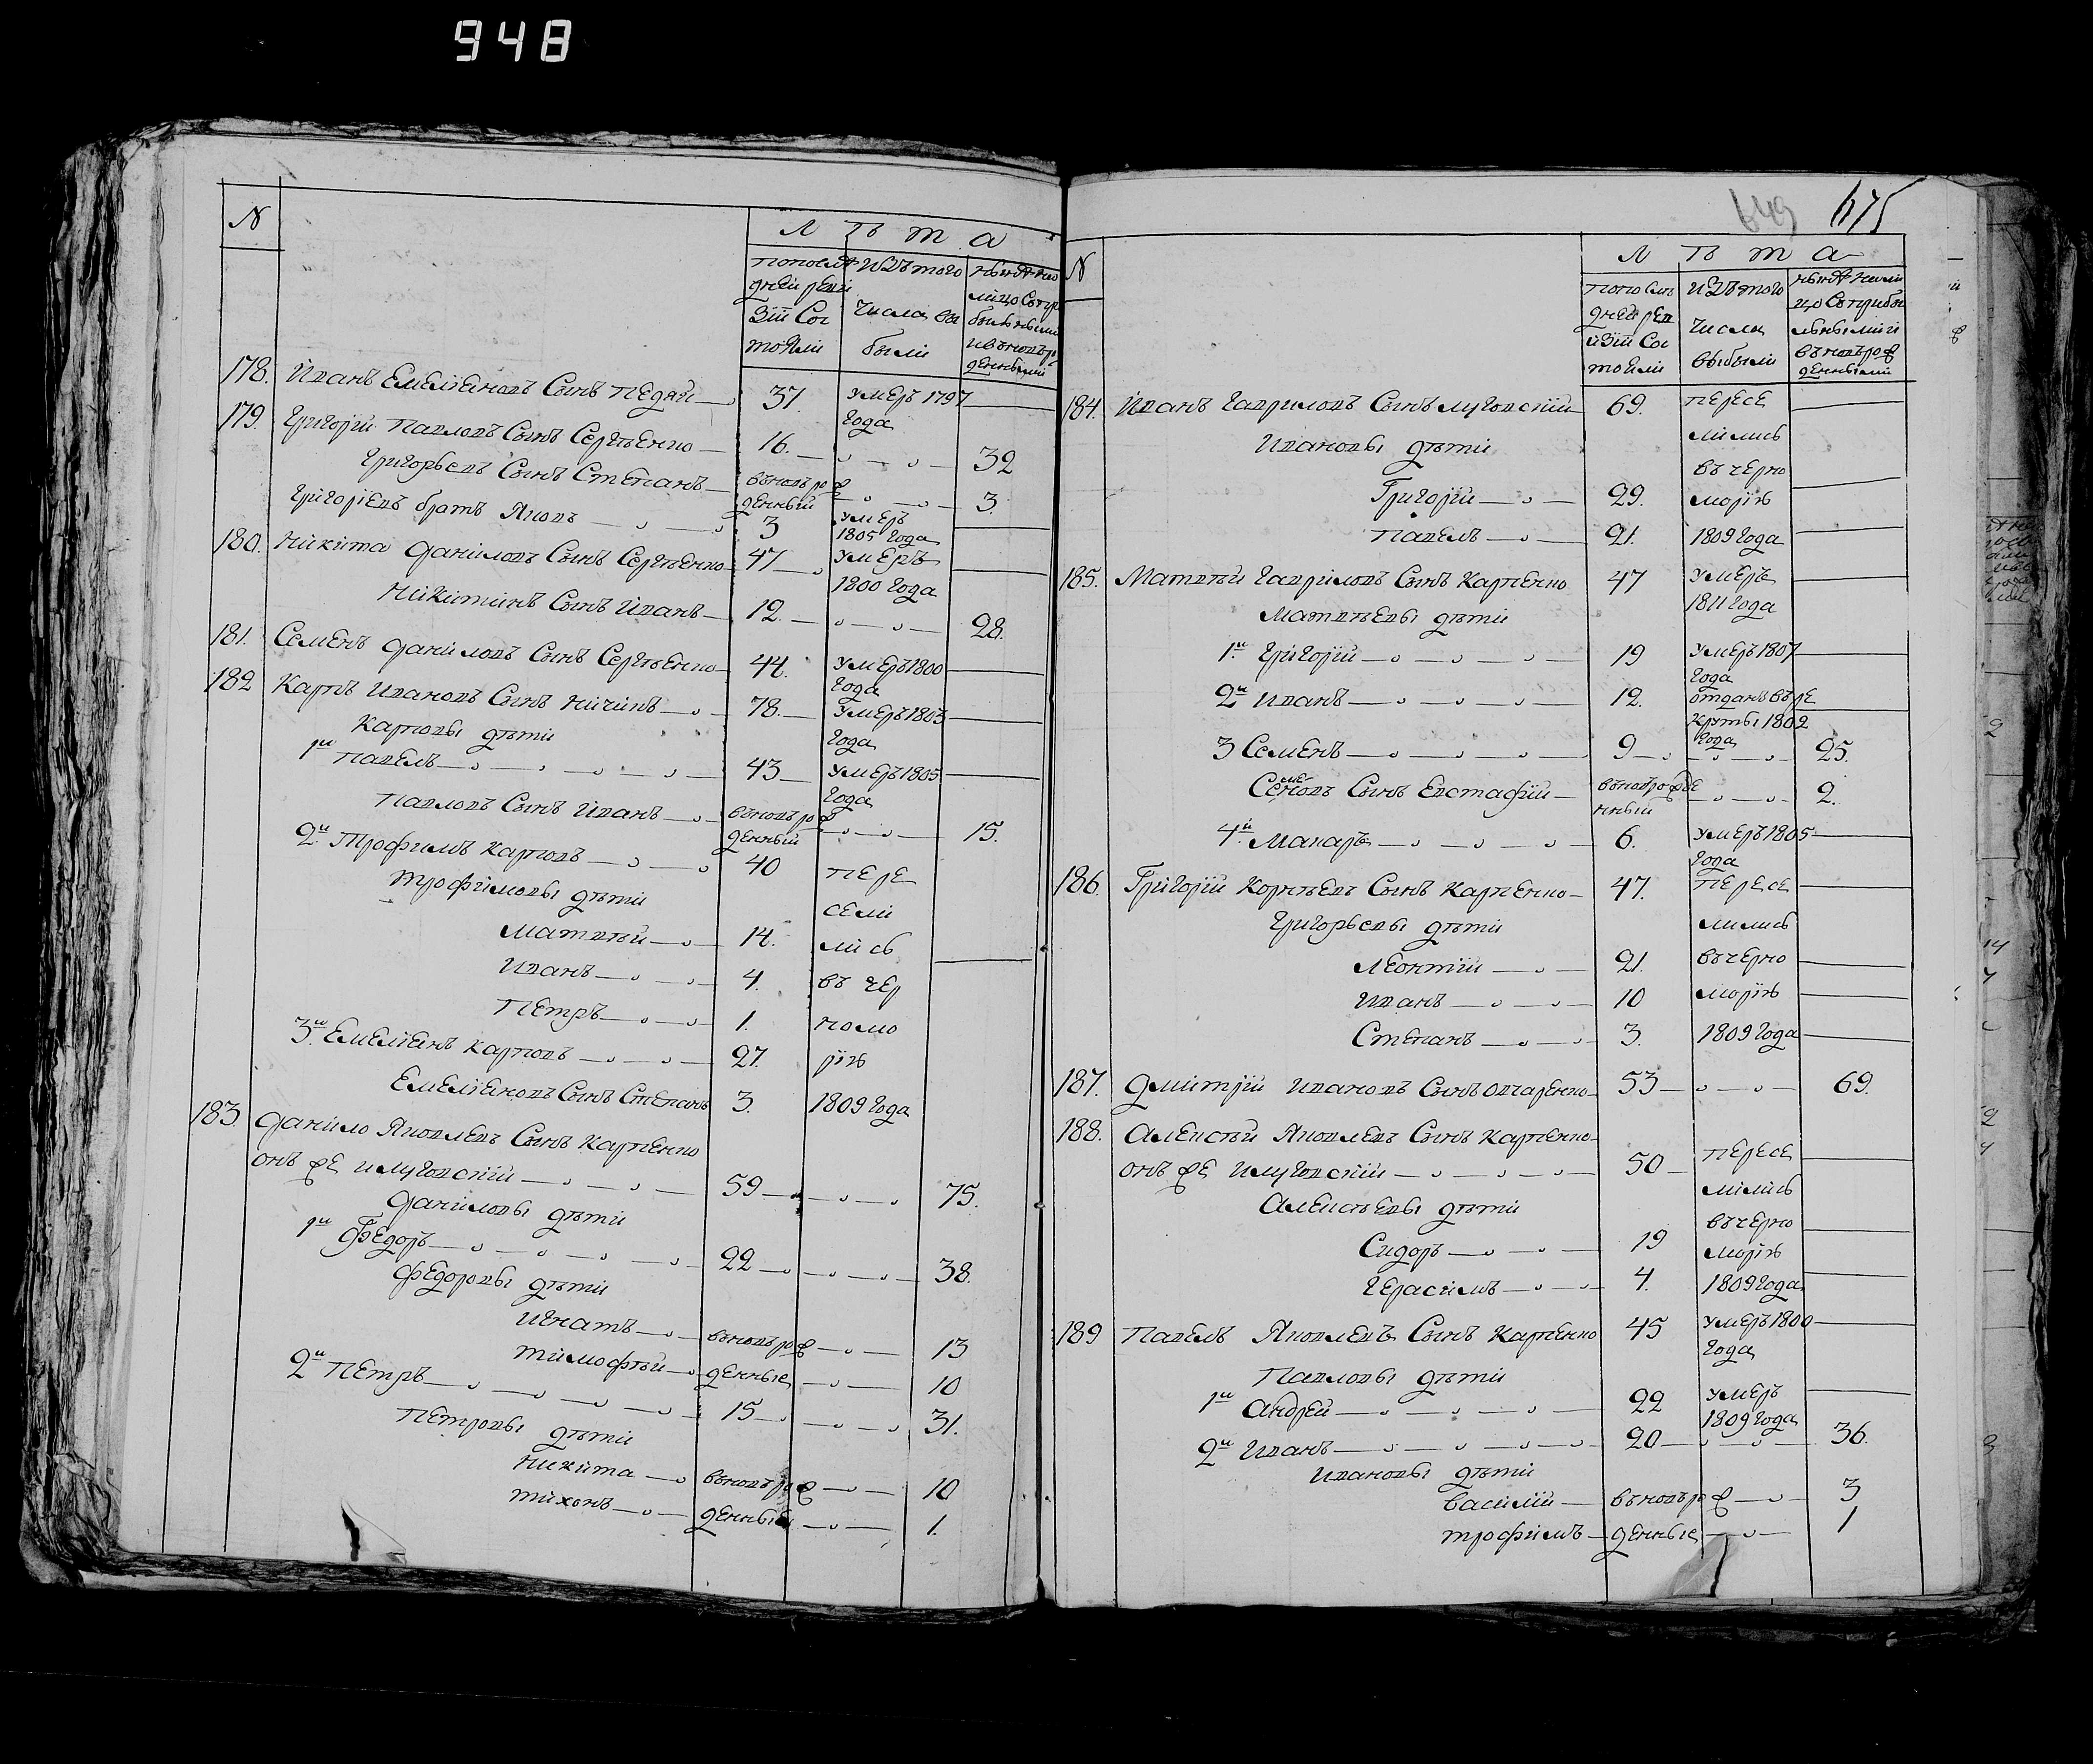 948
N
Л ѣ т а
по после
дней реви
зіи Сос
тояли
изъ того
числа вы
были
ныне на
лицо Сопри
былыми
и вновь ро
денными
178. Иванъ Емельяновъ Сынъ Педяй 37. умеръ 1797 года
179. Григорій Павловъ Сынъ Сергѣенко 16. 32
Григорьевъ Сынъ Степанъ вновь рожденный 3.
Григоріевъ братъ Яковъ 3 умеръ 1805 года
180. Никита Даниловъ Сынъ Сергѣенко 47 умеръ 1800 года
Никитинъ Сынъ Иванъ 12. 28.
181. Семенъ Даниловъ Сынъ Сергѣенко 44. умеръ 1800 года
182 Карпъ Ивановъ Сынъ Ничикъ 78. умеръ 1803 года
Карповы дѣти
1й Павелъ 43 умеръ 1805 года
Павловъ Сынъ Иванъ вновь рожденный 15.
2й Трофимъ Карповъ 40 пере
Трофимовы дѣти сели
Матвѣй 14. лись
Иванъ 4. въ чер
Петръ 1. номо
3й Емельянъ Карповъ 27. ріи
Емельяновъ Сынъ Степанъ 3. 1809 года
183. Данило Яковлевъ Сынъ Карпенко
онъ же и Луговскій 59 75.
Даниловы дѣти
1й Федоръ 22 38.
Федоровы дѣти
Игнатъ вновь рож 13
Тимофѣй денные 10
2й Петръ 15 31.
Петровы дѣти
Никита вновь рож 10
Тихонъ денный 1.
649 675
N
Л ѣ т а
по после
дней рев
изіи Сос
тояли
изъ того
числа
выбыли
ныне нали
цо Соприбы
лыми и
вновь рож
денными
184. Иванъ Гавриловъ Сынъ Луговскій 69. пересе
Ивановы дѣти лились
въ Черно
Григорій 29. моріи
Павелъ 21. 1809 года
185. Матвѣй Гавриловъ Сынъ Карпенко 47 умеръ 1811 года
Матвѣевы дѣти
1й Григорій 19 умеръ 1807 года
2й Иванъ 12. отданъ въ ре
круты 1802 года
3 Семенъ 9 25.
Семеновъ Сынъ Евстафій вновь рожденный 2.
4й Макаръ 6. умеръ 1805 года
186. Григорій Корнѣевъ Сынъ Карпенко 47. пересе
Григорьевы дѣти лились
Леонтій 21. въ черно
Иванъ 10 моріи
Степанъ 3. 1809 года
187. Дмитрій Ивановъ Сынъ Овчаренко 53 69.
188. Алексѣй Яковлевъ Сынъ Карпенко
онъ же и Луговскій 50 пересе
лились
Алексѣевы дѣти
въ черно
Сидоръ 19 моріи
Герасимъ 4. 1809 года
189 Павелъ Яковлевъ Сынъ Карпенко 45 умеръ 1800 года
Павловы дѣти
1й Андрей 22 умеръ 1809 года
2й Иванъ 20 36.
Ивановы дѣти
Василій вновь рож 3
Трофимъ денные 1